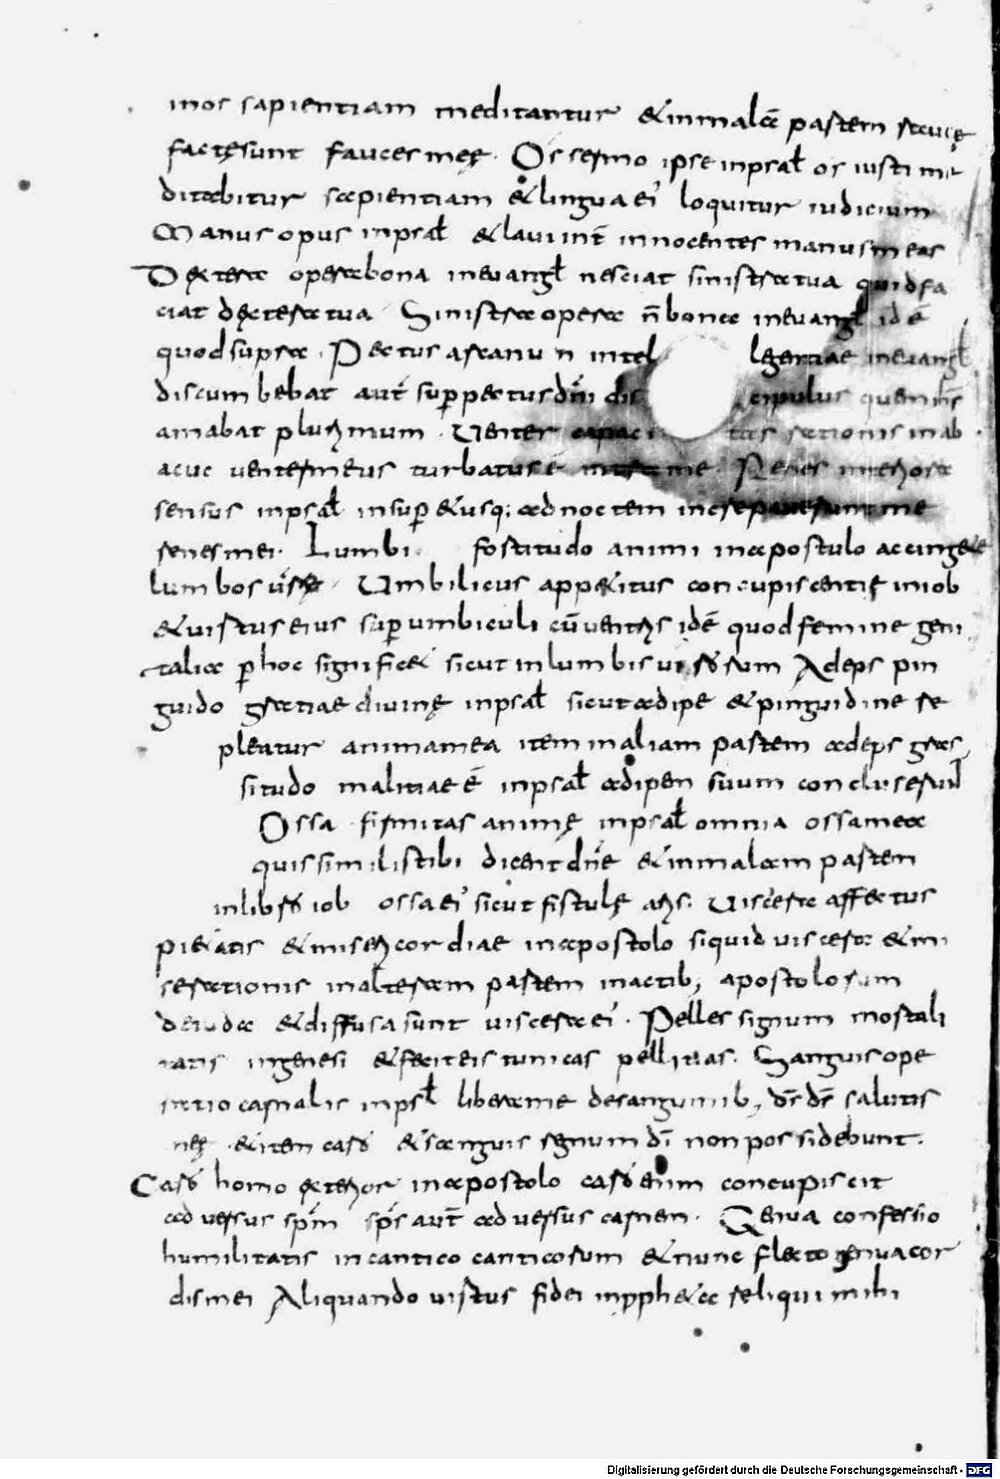 inos sapientiam meditantur & in malā partem raucę
factę sunt fauces meę. Os sermo ipse in psal̄ os iusti me
ditabitur sapientiam & lingua ei' loquitur iudicium
Manus opus in psal̄ & lavi int̄ innocentes manus meas
Dextera opera bona in evangl̄ nesciat sinistra tua quid fa
ciat dextera tua. Sinistra opera n̄ bona in evangl̄ idē
quod supra. Pectus arcanum intel legentiae in evangl̄
discumbebat aut̄ supra pectus dn̄i dis cipulus quem ih̄s
amabat plurimum. Venter capaci tas rationis in ab
acuc venter meus turbatus ē intra me. Renes interiora
sensus in psal̄ insup̱ & usq; ad noctem increpaverunt me
renes mei. Lumbi fortitudo animi in apostulo accingere
lumbos Umbilicus appetitus concupiscentię in iob
& virtus eius sup̱ umbiculi cū ventris idē quod femine geni
talia p̱ hoc significet sicut in lumbis virorum Adeps pin
guido gratiae divinę in psal̄ sicut adipe & pinguidine re
pleatur anima mea item in aliam partem adeps gras
situdo malitiae ē in psal̄ adipem suum concluserunt
Ossa firmitas animę in psal̄ omnia ossa mea
quis similis tibi dicent dn̄e & in malam partem
in libro iob ossa ei' sicut fistulę aeris. Viscera affectus
pietatis & misericordiae in apostolo siquid viscera & mi
serationis in alteram partem in actib; apostolorum
de iuda & diffusa sunt viscera ei'. Pelles signum mortali
tatis in genesi & fecit eis tunicas pellicias. Sanguis ope
ratio carnalis in psl̄ libera me de sanguinib; ds̄ ds̄ salutis
meę & item caro & sanguis regnum dī non possidebunt.
Caro homo exterior in apostolo caro enim concupiscit
adversus spm̄ sps̄ aut̄ adversus carnem. Genua confessio
humilitatis in cantico canticorum & nunc flecto genua cor
dis mei Aliquando virtus fidei in pph&a reliqui mihi
Digitalisierung gefördert durch die Deutsche Forschungsgemeinschaft - DFG